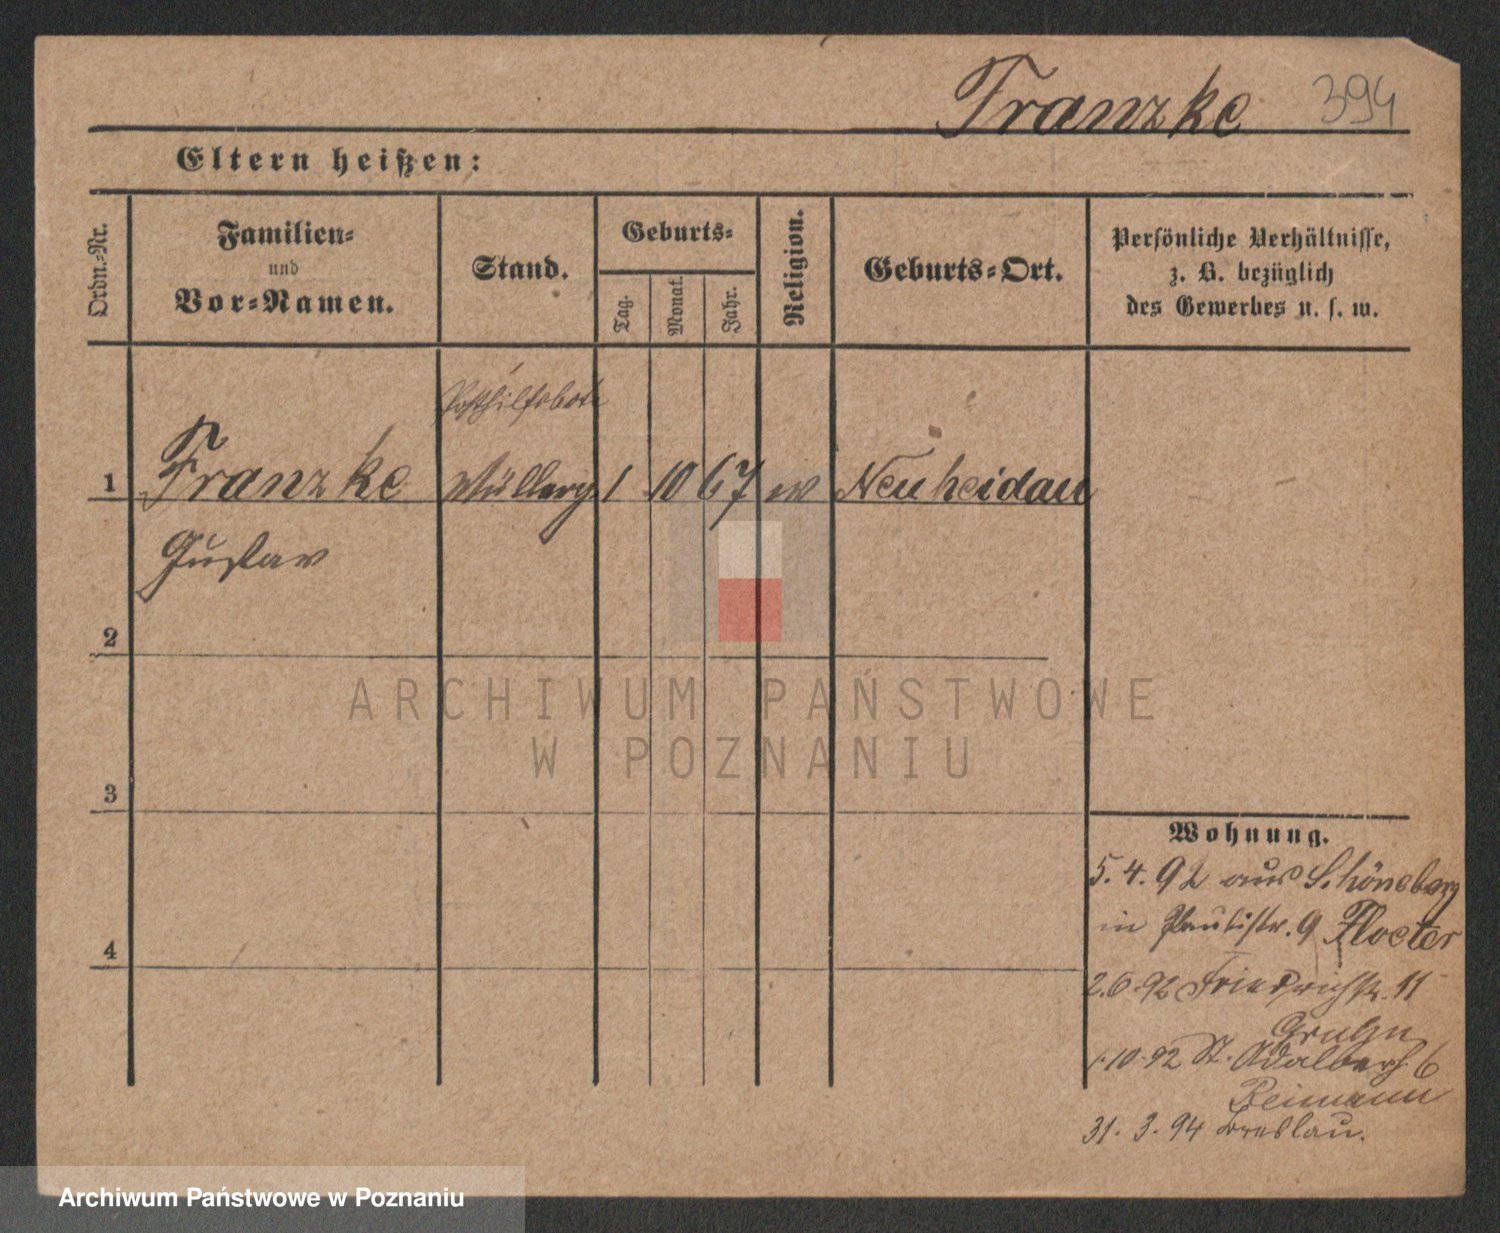 Franzke 394
Eltern heißen:
Ordn.-Nr.
Familien-
und
Vor-Namen.
Stand.
Geburts-
Tag.
Monat.
Jahr.
Religion.
Geburts-Ort.
Persönliche Verhältnisse,
z. B. bezüglich
des Gewerbes u. s. w.
Posthilfsbote
1 Franzke 1 10 67 ev Neuheidau
Gustav
2
3
4
ARCHIWUM PAŃSTWOWE
W POZNANIU
Wohnung.
5.4.92 aus Schöneberg
in Paulistr. 9 Floeter
2.6.92 Friedrichstr. 11
1.10.92 St. Adalbert 6
Reimann
31.3.94 Breslau.
Archiwum Państwowe w Poznaniu